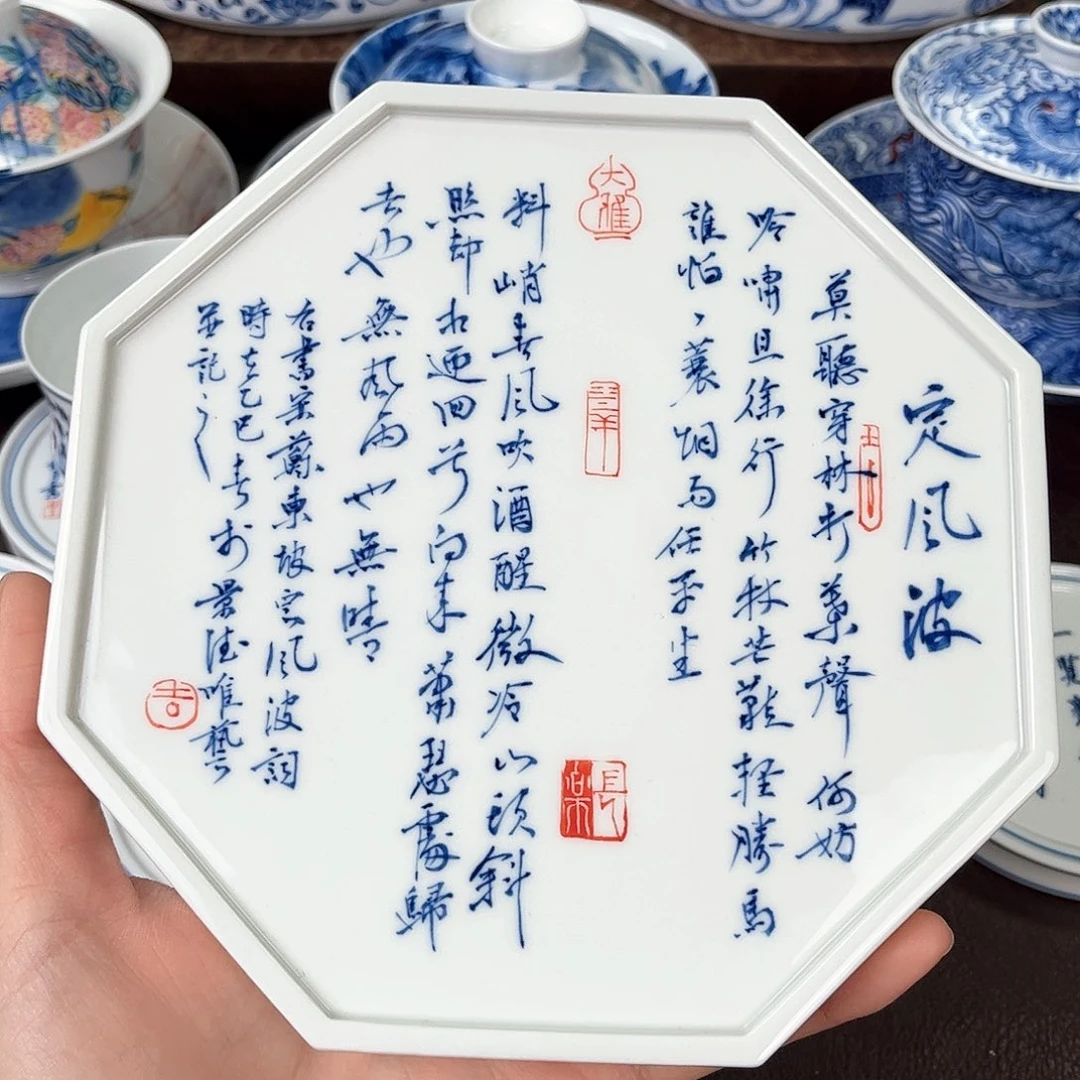 定風波
莫聽穿林打葉聲何妨
吟嘯且徐行竹杖芒鞋輕勝馬
誰怕一蓑烟雨任平生
大雅
料峭春風吹酒醒微冷山頭斜
照却相迎回首向來蕭瑟處歸
去也無風雨也無晴
右書宋蘇東坡定風波詞
時在乙巳春於景德唯藝
並記之
吉